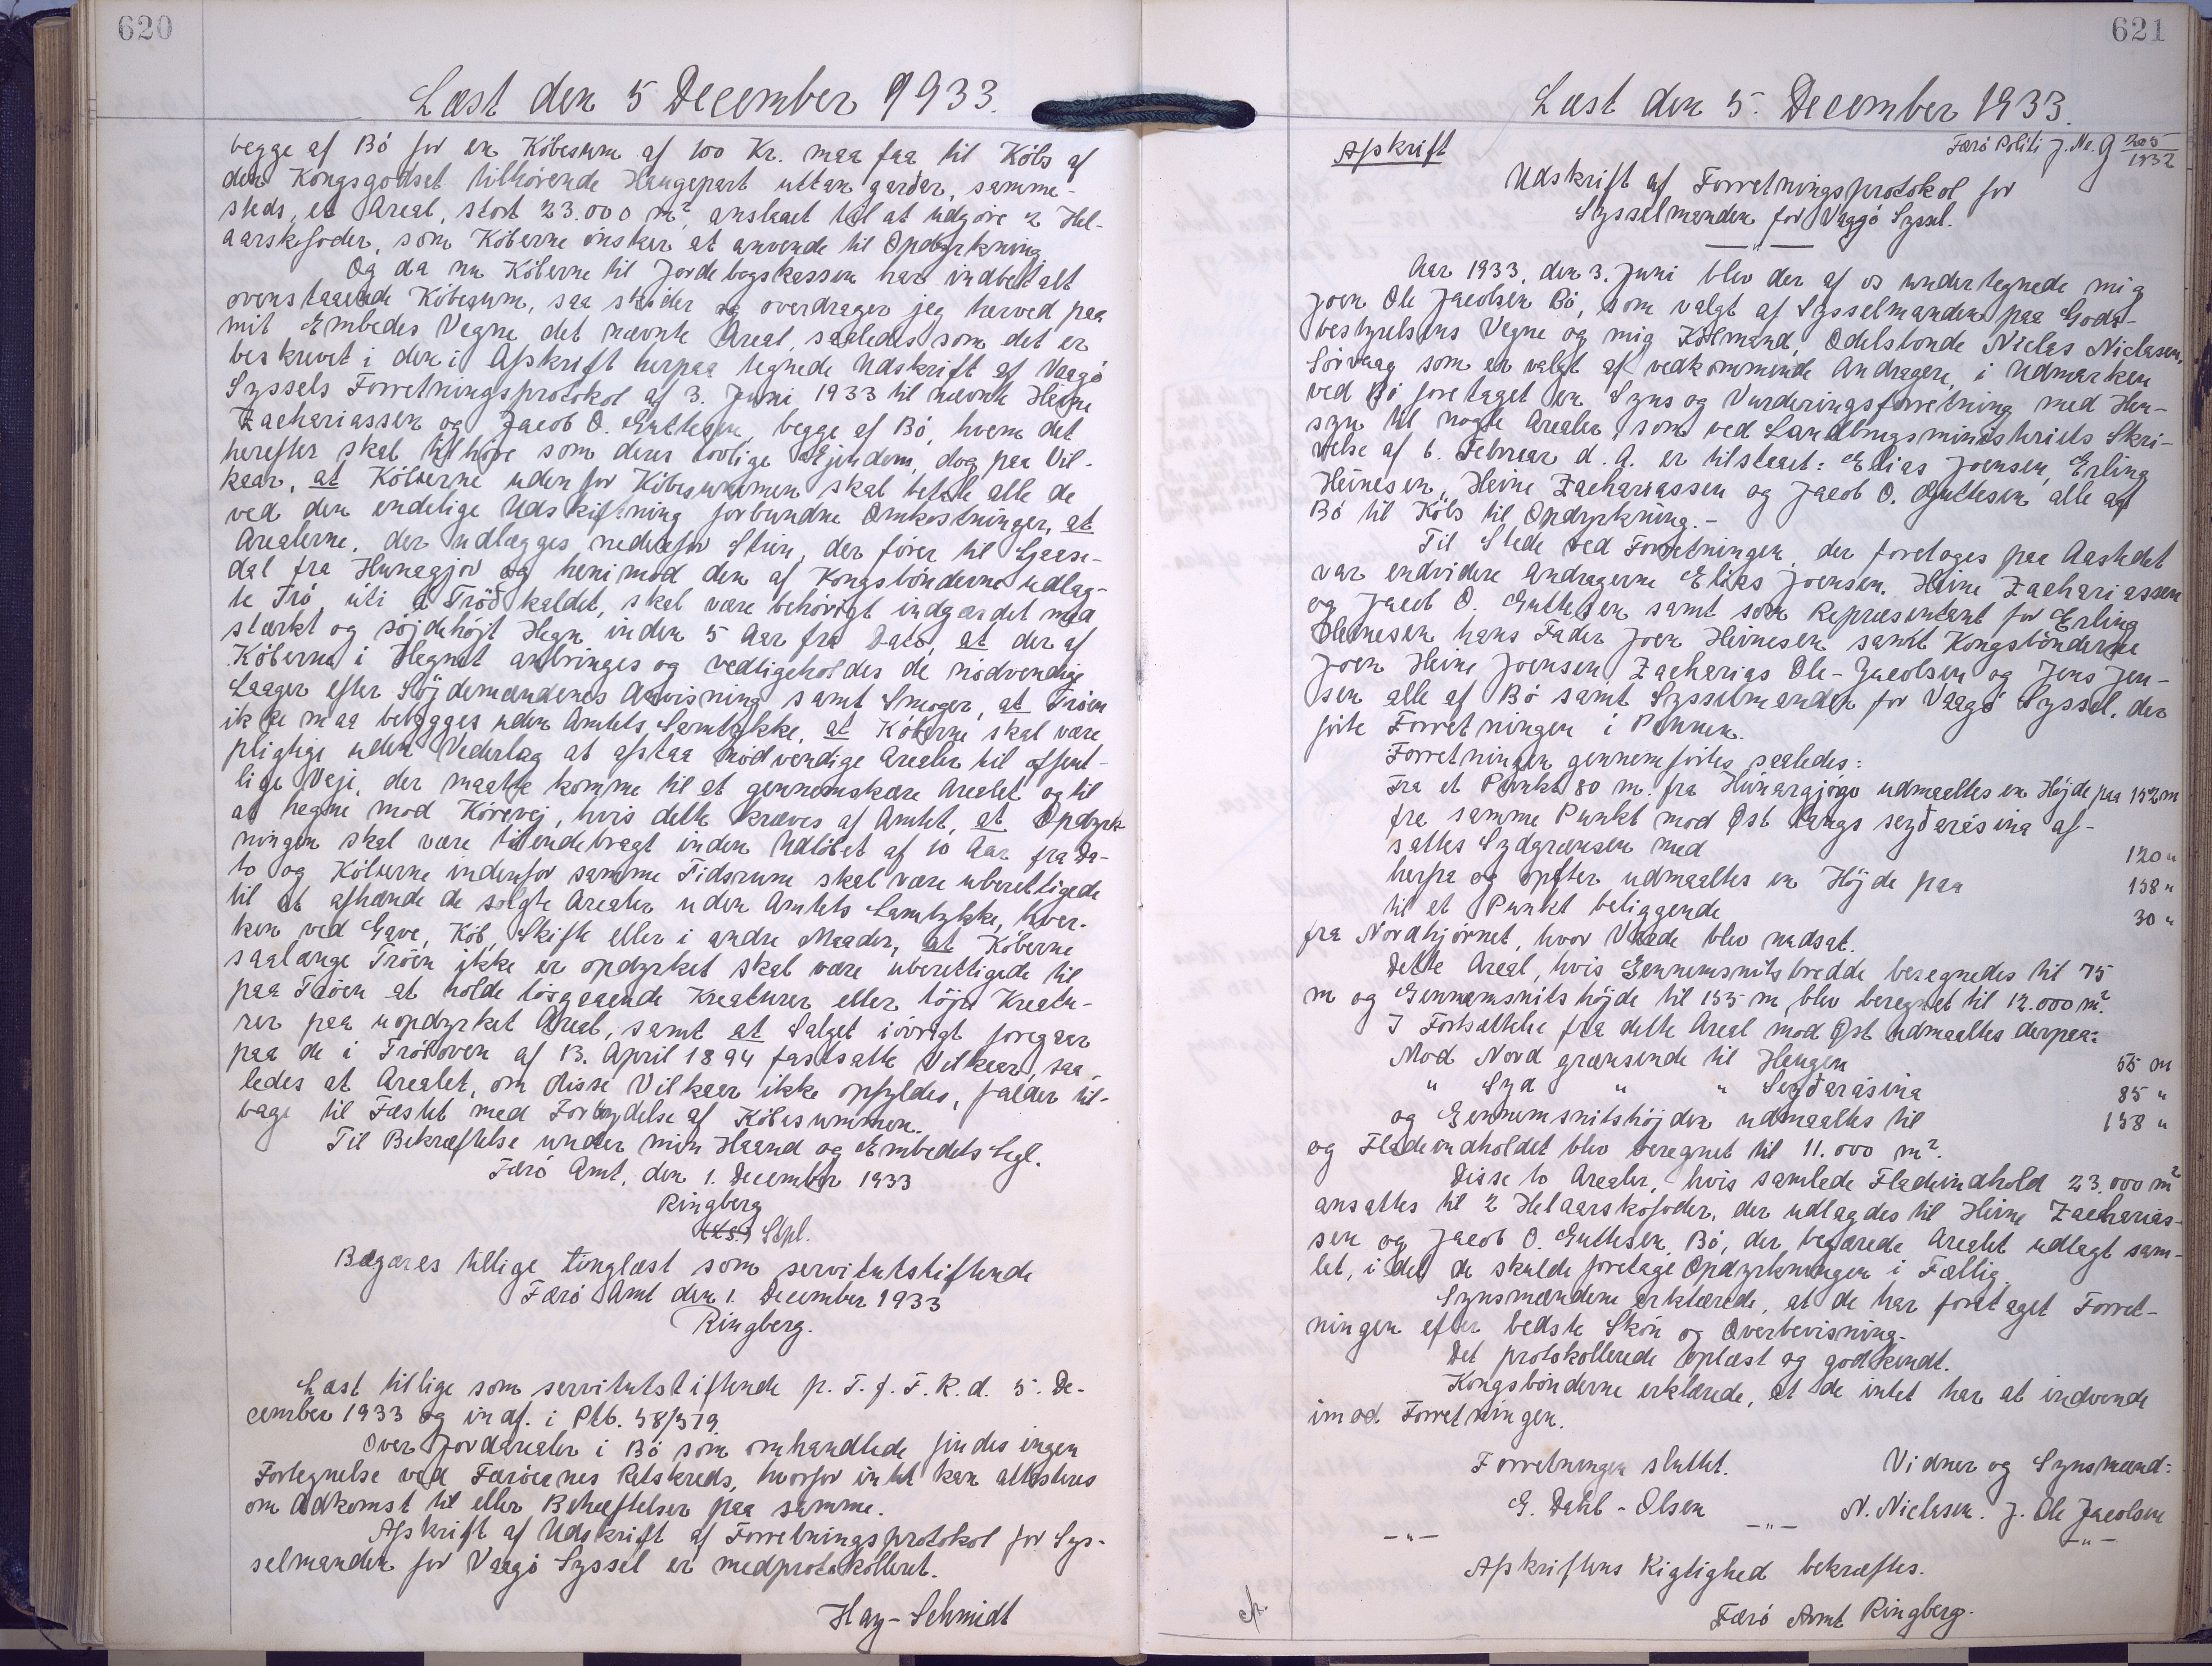 620
Læst den 5 December 1933.
begge af Bö for en Köbesum af 100 Kr. maa faa til Köbs af
den Kongsgodset tilhörende Haugepart uttan gardar, samme-
steds, et Areal, stort 23.000 m², anslaaet til at udgöre 2 Hel-
aarskofoder, som Köberne önsker at anvende til Opdyrkning.
Og da nu Köberne til Jordebogskassen har indbetalt
ovenstaaende Köbesum, saa sköder og overdrager jeg herved paa
mit Embedes Vegne det nævnte Areal, saaledes som det er
beskrevet i den i Afskrift herpaa tegnede Udskrift af Vaagö
Syssels Forretningsprotokol af 3. Juni 1933 til nævnte Heine
Zachariassen og Jacob O. Guttesen, begge af Bö, hvem det
herefter skal tilhöre som deres lovlige Ejendom, dog paa Vil-
kaar, at Köberne uden for Köbesummen skal betale alle de
ved den endelige Udskiftning forbundne Omkostninger, at
Arealerne, der udlægges nedenfor Stien, der förer til Gaase-
dal fra Hunagjov og henimod den af Kongsbönderne udlag-
te Trö, uti à Tröð kaldet, skal være behörigt indgærdet med
stærkt og söjdehöjt Hegn inden 5 Aar fra Dato, at der af
Köberne i Hegnet anbringes og vedligeholdes de nödvendige
Laager efter Söjdemændenes Anvisning samt Smoger, at Tröen
ikke maa bebygges uden Amtets Samtykke, at Köberne skal være
pligtige uden Vederlag at afstaa nödvendige Arealer til offent-
lige Veje, der maatte komme til at gennemskære Arealet og til
at hegne mod Körevej, hvis dette kræves af Amtet, at Opdyrk-
ningen skal være tilendebragt inden Udlöbet af 10 Aar fra Da-
to og Köberne indenfor samme Tidsrum skal være uberettigede
til at afhænde de solgte Arealer uden Amtets Samtykke, hver-
ken ved Gave, Köb, Skifte eller i andre Maader, at Köberne
saalænge Tröen ikke er opdyrket skal være uberettigede til
paa Tröen at holde lösgaaende Kreaturer eller töjre Kreatu-
rer paa uopdyrket Areal, samt at Salget iövrigt foregaar
paa de i Tröloven af 13. April 1894 fastsatte Vilkaar, saa-
ledes at Arealet, om disse Vilkaar ikke opfyldes, falder til-
bage til Fæstet med Fortabelse af Köbesummen.
Til Bekræftelse under min Haand og Embedets Segl.
Færö Amt, den 1. December 1933
Ringberg
(L.S.) Stpl.
Begæres tillige tinglæst som servitutstiftende
Færö Amt den 1. December 1933
Ringberg.
Læst tillige som servitutstiftende p. T. f. F. R. d. 5. De-
cember 1933 og indf. i Ptb. 58/519.
Over Jordarealer i Bö som omhandlede findes ingen
Fortegnelse ved Færöernes Retskreds, hvorfor intet kan attesteres
om Adkomst til eller Behæftelser paa samme.
Afskrift af Udskrift af Forretningsprotokol for Sys-
selmanden for Vaagö Syssel er medprotokolleret.
Hay-Schmidt
621
Læst den 5. December 1933.
Afskrift
Færö Politi J. Nr. G 205/1932
Udskrift af Forretningsprotokol for
Sysselmanden for Vaagö Syssel.
Aar 1933, den 3. Juni blev der af os undertegnede mig
Joen Ole Jacobsen Bö, som valgt af Sysselmanden paa Gods-
bestyrelsens Vegne og mig Köbmand, Odelsbonde Niclas Niclasen,
Sörvaag som er valgt af vedkommende Andragere, i Udmarken
ved Bö foretaget en Syns og Vurderingsforretning med Hen-
syn til nogle Arealer, som ved Landbrugsministeriets Skri-
velse af 6. Februar d. A. er tilstaaet: Elias Joensen, Erling
Heinesen, Heine Zachariassen og Jacob O. Guttesen alle af
Bö til Köbs til Opdyrkning.-
Til Stede ved Forretningen, der foretoges paa Aastedet
var endvidere Andragerne Elias Joensen, Heine Zachariassen
og Jacob O. Guttesen samt som Repræsentant for Erling
Heinesen hans Fader Joen Heinesen samt Kongsbönderne
Joen Heine Joensen, Zacharias Ole-Jacobsen og Jens Jen-
sen alle af Bö samt Sysselmanden for Vaagö Syssel, der
förte Forretningen i Pennen.
Forretningen gennemförtes saaledes:
Fra et Punkt 80 m. fra Húnargjógv udmaaltes en Höjde paa 152 m
fra samme Punkt mod Öst langs seyðarásina af-
sattes Sydgrænsen med 120 "
herfra og opefter udmaaltes en Höjde paa 158 "
til et Punkt beliggende 30 "
fra Nordhjörnet, hvor Varde blev nedsat.
Dette Areal, hvis Gennemsnitsbredde beregnedes til 75
m og Gennemsnitshöjde til 155 m, blev beregnet til 12.000 m².
I Fortsættelse fra dette Areal mod Öst udmaaltes derpaa:
Mod Nord grænsende til Haugen 55 m
" Syd " " Seyðarásina 85 "
og Gennemsnitshöjden udmaaltes til 158 "
og Fladeindholdet blev beregnet til 11.000 m².
Disse to Arealer, hvis samlede Fladeindhold 23.000 m²
ansattes til 2 Helaarskofoder, der udlagdes til Heine Zacharias-
sen og Jacob O. Guttesen, Bö, der begærede Arealet udlagt sam-
let, i det de skulde foretage Opdyrkningen i Fællig.
Synsmændene erklærede, at de har foretaget Forret-
ningen efter bedste Skön og Overbevisning.
Det protokollerede oplæst og godkendt.
Kongsbönderne erklærede, at de intet har at indvende
imod Forretningen.
Forretningen sluttet. Vidner og Synsmænd:
G. Dahl-Olsen N. Niclasen. J. Ole Jacobsen
-"- -"- -"-
Afskriftens Rigtighed bekræftes.
Færö Amt Ringberg.